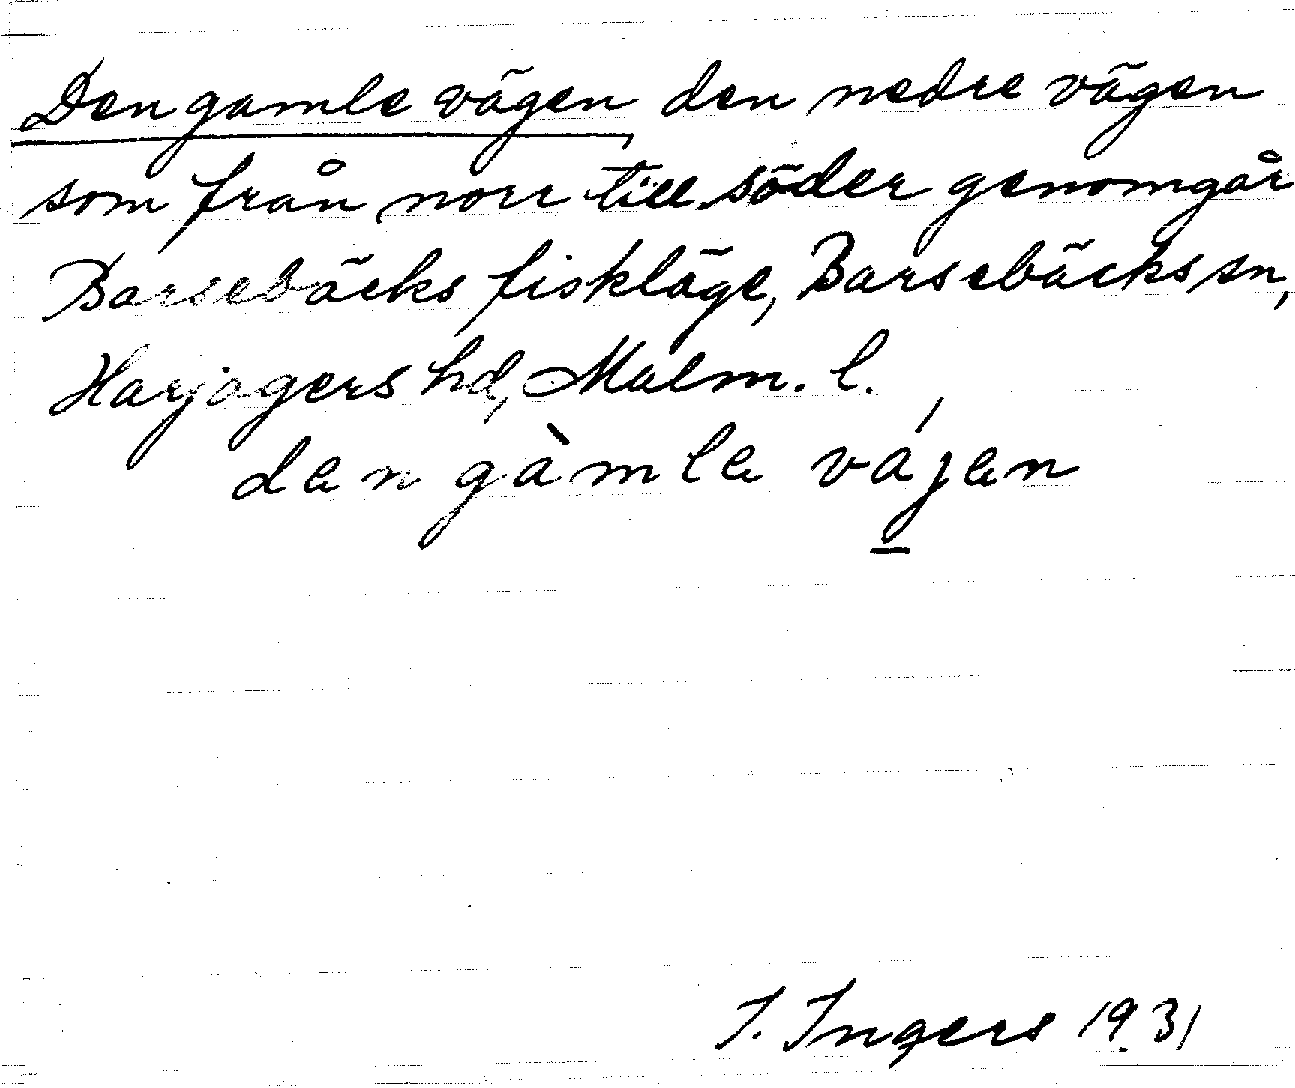 Den gamle vägen, den nedre vägen
som från norr till söder genomgår
Barsebäcks fiskläge, Barsebäcks sn,
Harjagers hd, Malm. l.
den gàmla vájen
I. Ingers 1931